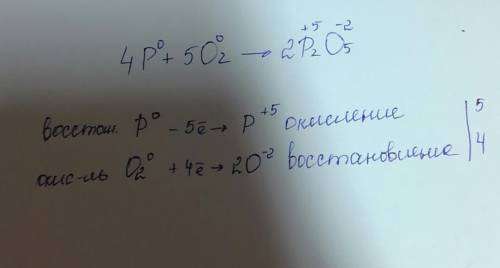 +5 -2
4P⁰ + 5O₂⁰ → 2P₂O₅
восстан. P⁰ - 5ē → P⁺⁵ окисление | 5
окис-ль O₂⁰ + 4ē → 2O⁻² восстановление | 4